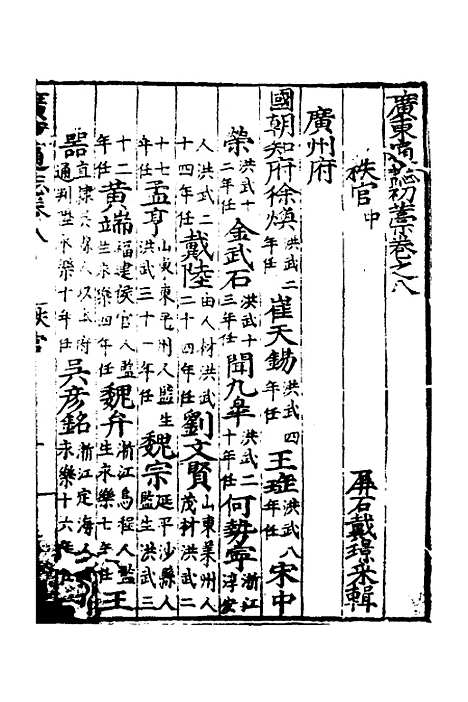 廣東通志初藁卷之八
秩官中
屏石戴璟采輯
廣州府
國朝知府徐煥洪武二年任崔天錫洪武四年任王珪洪武八年任宋中
榮洪武十二年任金武石洪武十三年任聞九皋洪武二十年任何勢寧浙江淳安
人洪武二十四年任戴陸由人材洪武二十四年任劉文賢山東萊州人茂材洪武
十七年任孟亨山東東平州人監生洪武三十一年任魏宗延平沙縣人監生洪武三
十二年任黃端福建侯官人監生永樂四年任魏弁浙江烏程人監生永樂七年任王
器直隸人以通判陞永樂十年任吳彥銘浙江定海人永樂十六年
廣東通志卷八 秩官